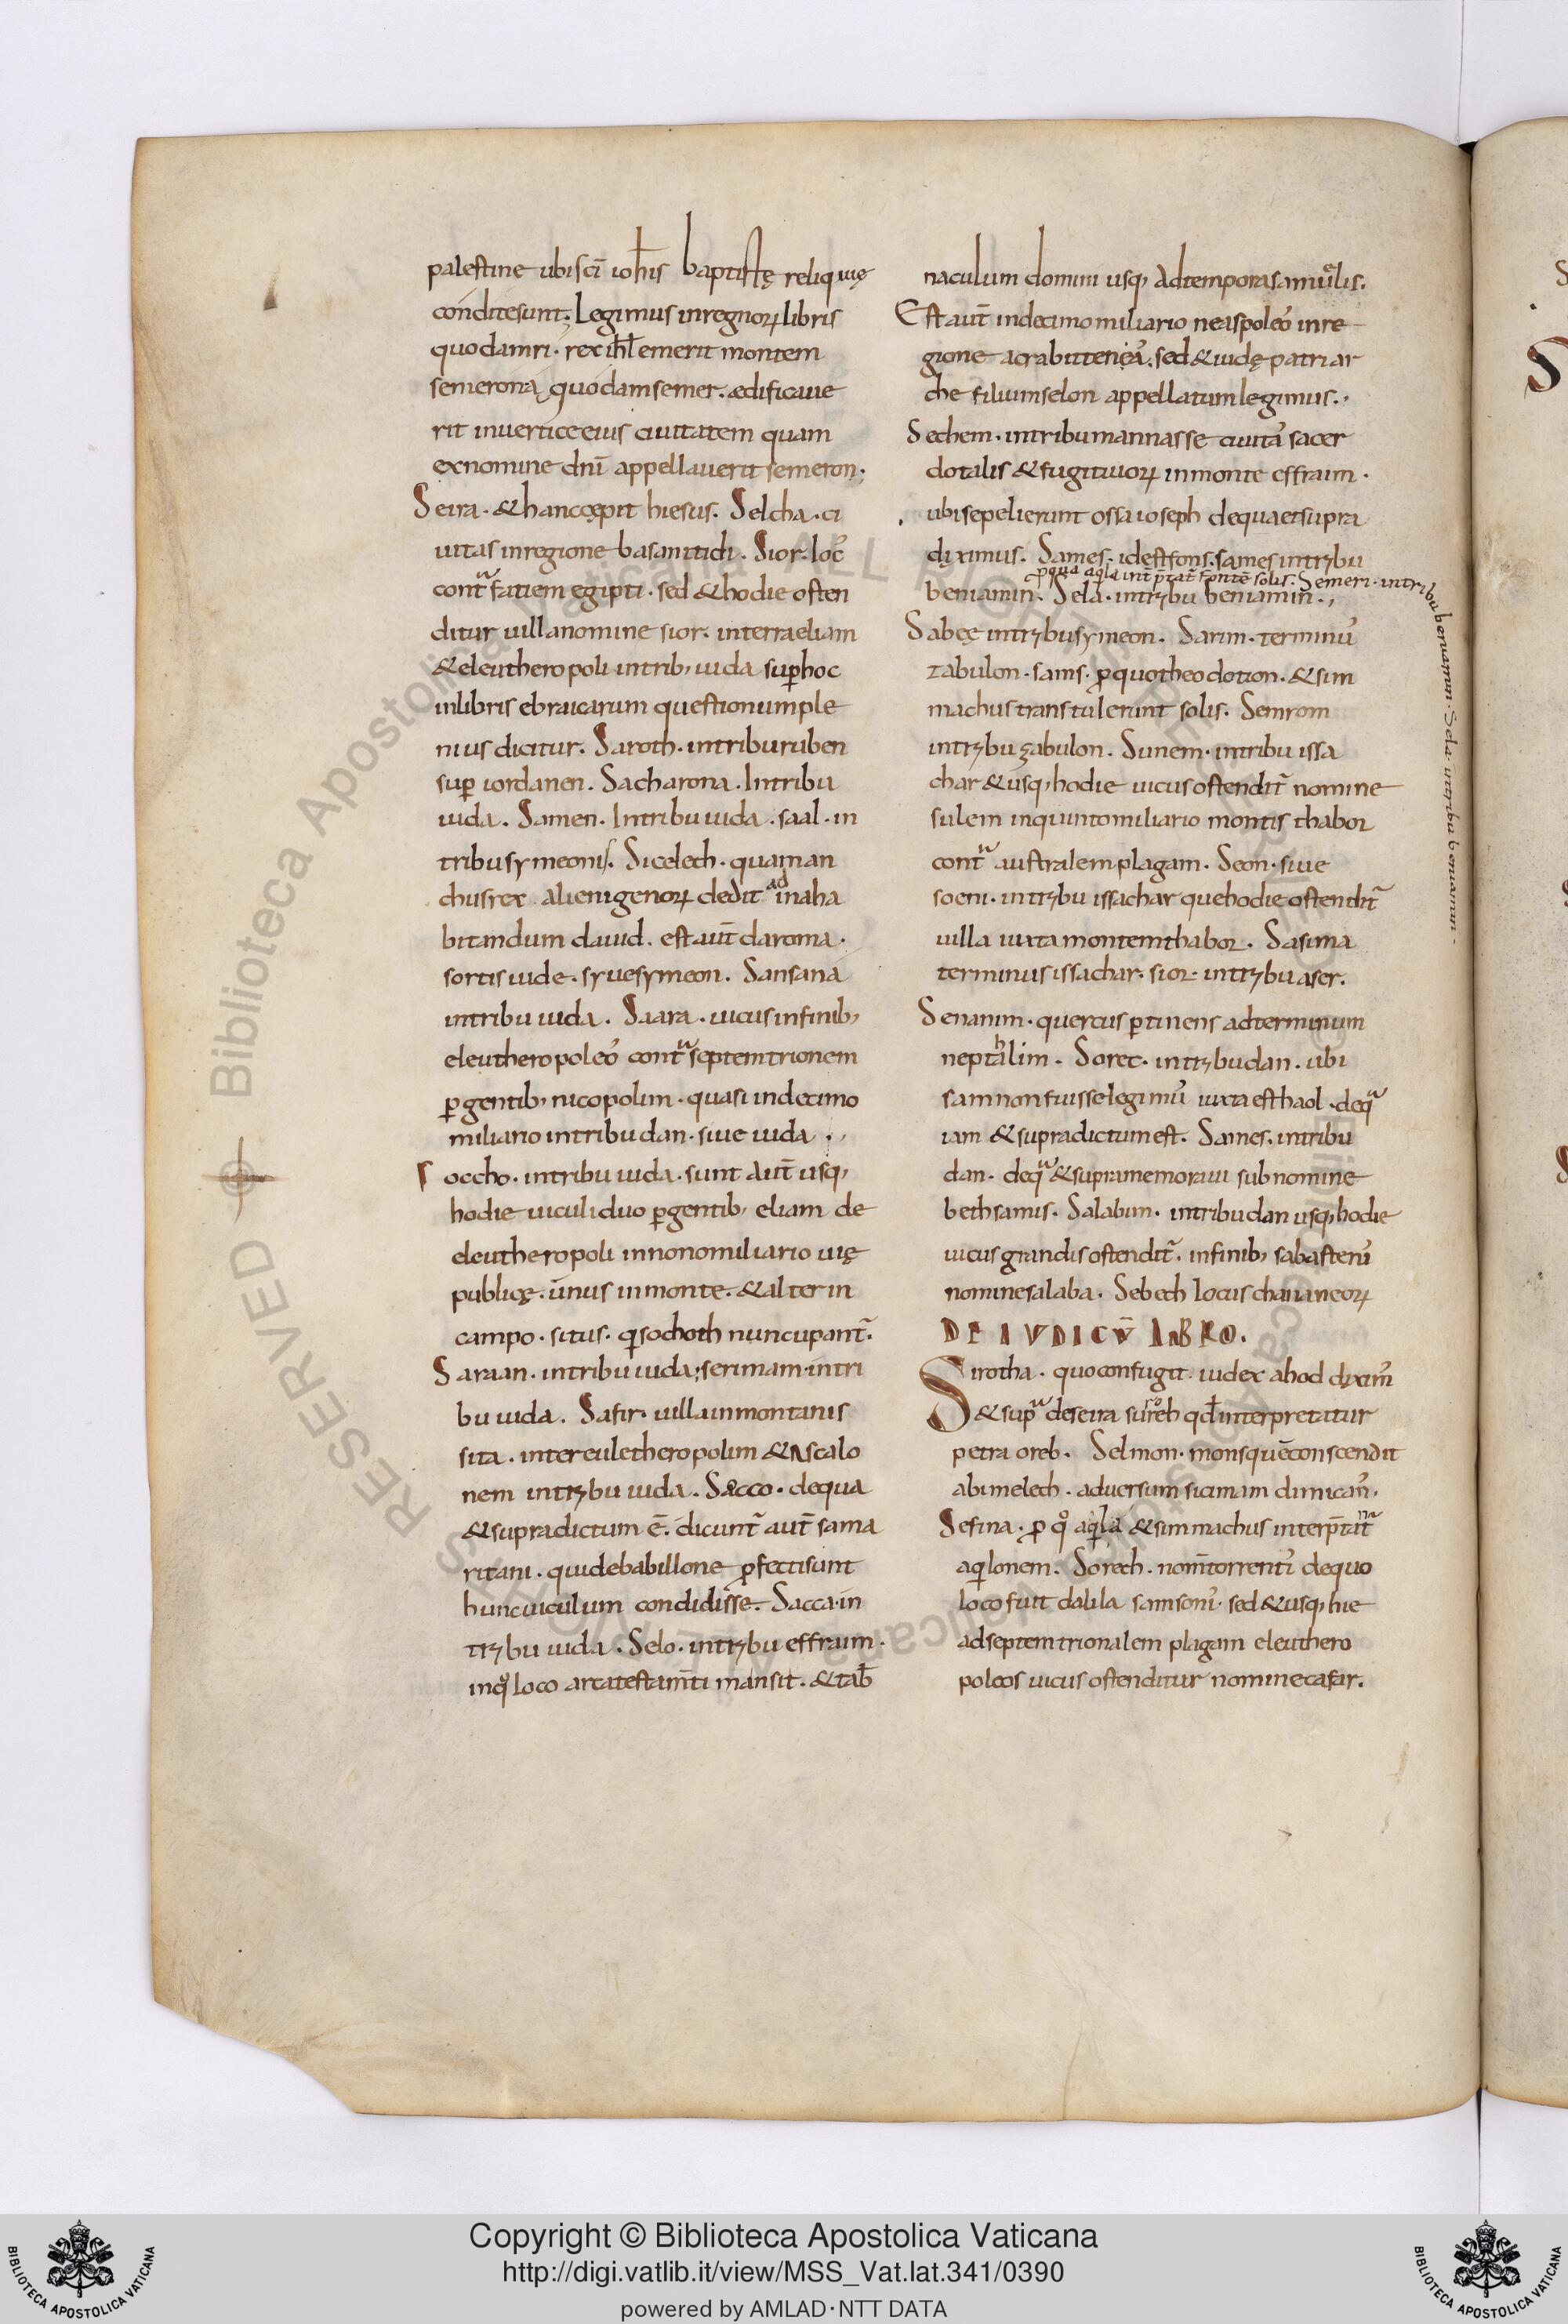 palestine ubi sc̄i ioh̄is baptistę reliquię
condite sunt. Legimus in regnoꝝ libris
quod amri · rex ihl̄ emerit montem
semerona quodam semer. ædificaue
rit in uertice eius ciuitatem quam
ex nomine dn̄i appellauerit semeron;
Seira · & hanc cępit hiesus. Selcha · ci
uitas in regione basanitidi. Sior · loc̛
contᵃ fatiem egipti · sed & hodie osten
ditur uilla nomine sior · inter raeliam
& eleuthero poli in trib; iuda sup̄ hoc
in libris ebraicarum questionum ple
nius dicitur. Saroth · in tribu ruben
sup̄ iordanen. Sacharona . In tribu
iuda. Samen. In tribu iuda . saal · in
tribu symeonis. Sicelech · quam an
chus rex alienigenoꝝ dedit ad inaha
bitandum dauid. est aut̄ daroma ·
sortis iude · syue symeon. Sansana
in tribu iuda. Saara . uicus in finib;
eleuthero poleo᷒ contᵃ septemtrionem
ꝑgentib; nicopolim · quasi in decimo
miliario in tribu dan · siue iuda .,
Soccho · in tribu iuda · sunt aut̄ usq;
hodie uiculi duo ꝑgentib; eliam de
eleutheropoli in nono miliario uię
publicę. unus in monte. & alter in
campo . situs. q̄ sochoth nuncupant᷑.
Saraan. in tribu iuda; serimam · in tri
bu iuda. Safir · uilla in montanis
sita . inter euletheropolim & ascalo
nem in tribu iuda. Sacco · de qua
& supra dictum ē. dicunt᷑ aut̄ sama
ritani . qui de babillone ꝓfecti sunt
hunc uiculum condidisse. Sacca · in
tribu iuda . Selo · in tribu effraim .
in qͦ loco arca testam̄ti mansit. & tab̄
naculum domini usq; ad tempora samuͤlis.
Est aut̄ in decimo miliario neaspoleo᷒ in re
gione acrabittenęa᷒. sed & iudę patriar
che filium selon appellatum legimus.,
Sechem · in tribu mannasse ciuita᷒ sacer
dotalis & fugitiuoꝝ in monte effraim ·
ubi sepelierunt ossa ioseph de qua et supra
dyximus. Sames. id est fons. sames in tribu
ꝓ qua aqla int̄p̄tat᷑ fontē solis. Semeri · in tribu beniamin · Sela · in tribu beniamin ·
beniamin. Sela · in tribu beniamin .,
Sabeę in tribu symeon. Sarim · terminu᷒
zabulon · sams · ꝓ quo theodotion · & sim
machus transtulerunt solis. Semrom
in tribu zabulon. Sunem · in tribu issa
char & usq; hodie uicus ostendit᷑ nomine
sulem in quinto miliario montis thabor
contᵃ australem plagam. Seon · siue
soeni · in tribu issachar que hodie ostendit᷑
uilla iuxta montem thabor. Sasima
terminus issachar · sior · in tribu aser.
Senanim · quercus ꝑtinens ad terminum
neptalim. Sorec · in tribu dan . ubi
samnon fuisse legimu᷒ iuxta esthaol . de qᵃ
iam & supra dictum est. Sames. in tribu
dan · de qᵃ & supra memoraui sub nomine
beth samis. Salabim · in tribu dan usq; hodie
uicus grandis ostendit᷑. in finib; sabasteni᷒
nomine salaba. Sebech locus chananeoꝝ
DE IVDICV̄ LIBRO.
Sirotha . quo confugit. iudex ahod dyxim᷒
& supᵃ de seira suroreb qđ interpretatur
petra oreb. Selmon · mons quē conscendit
abimelech . aduersum sicimam dimican᷒.
Sefina . ꝓ qͦ aqla & simmachus interp̄tant᷑
aqlonem. Sorech . nom̄ torrenti᷒ de quo
loco fuit dalila samsoni᷒. sed & usq; hie
ad septemtrionalem plagam eleuthero
poleos uicus ostenditur nomine cafar.
Copyright © Biblioteca Apostolica Vaticana
http://digi.vatlib.it/view/MSS_Vat.lat.341/0390
powered by AMLAD·NTT DATA